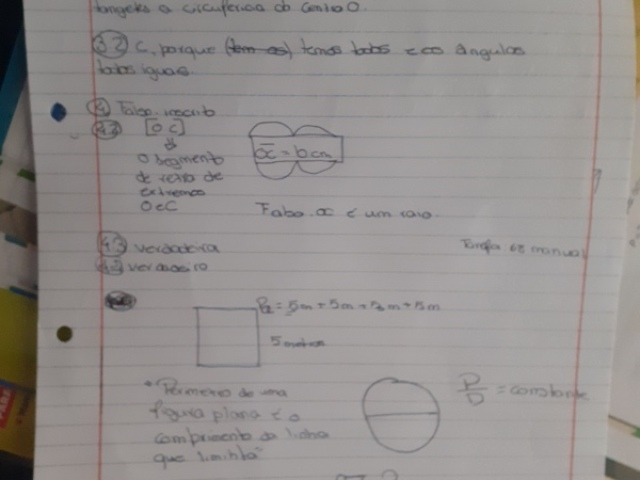 tangetes a circuferica do centro O.
3.2 C, porque (tem os) temos todos e os ângulos
todos iguais.
4 Falso. inscrito
[O C]
O segmento
de reta de
extremos
O e C
OC = 6 cm
Falso. OC é um raio.
4.3 verdadeira
verdadeiro
Tarefa 68 manual
P = 5m + 5m + 5m + 5m
5 metros
"Perímetro de uma
figura plana é o
comprimento da linha
que limita"
P/D = constante